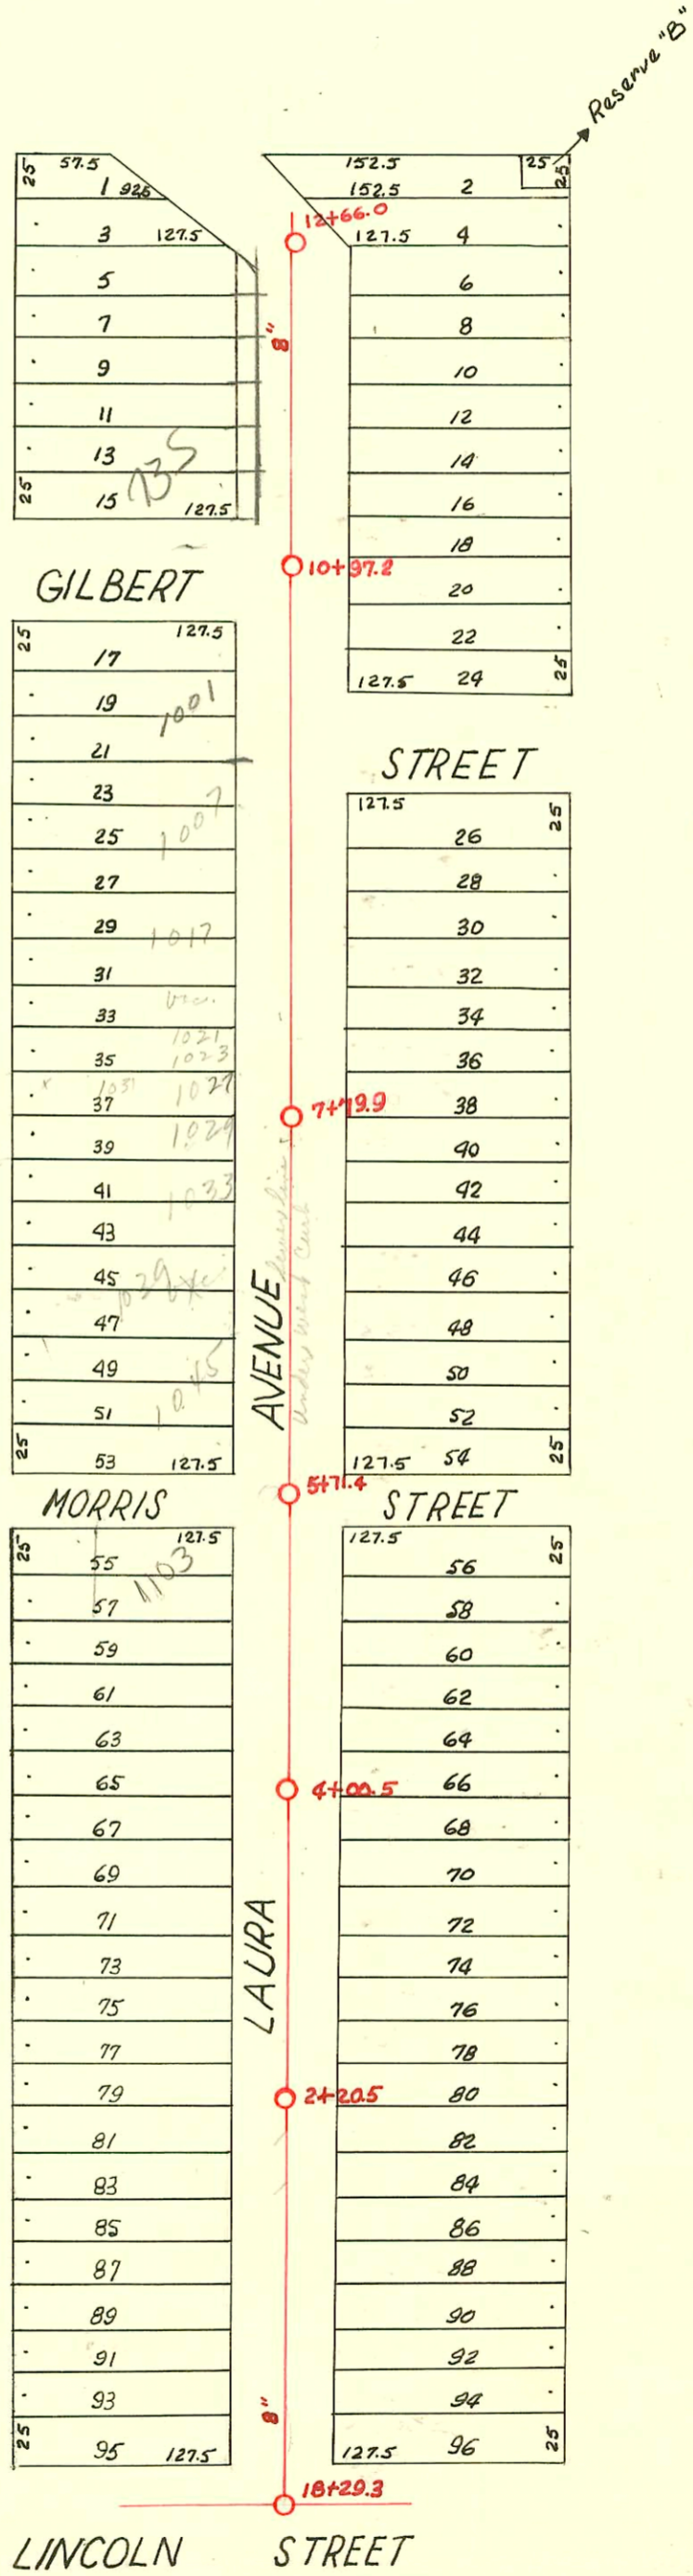 Reserve "B"
25 57.5
1 92.5
3 127.5
5
7
9
11
13
25 15 127.5
735
152.5 25 25
152.5 2
127.5 4
6
8
10
12
14
16
18
20
22
127.5 24 25
12+66.0
8"
10+97.2
GILBERT
STREET
25 127.5
17
19
1001
21
23
25
1007
27
29
1017
31
33
vac.
1021
35
1023
1031
1027
37
39
1029
41
1033
43
45
1039
47
49
1045
51
25 53 127.5
127.5 25
26
28
30
32
34
36
38
40
42
44
46
48
50
52
127.5 54 25
7+79.9
AVENUE
Sewer line
Under West Curb
5+71.4
MORRIS
STREET
25 127.5
55
1103
57
59
61
63
65
67
69
71
73
75
77
79
81
83
85
87
89
91
93
25 95 127.5
127.5 25
56
58
60
62
64
66
68
70
72
74
76
78
80
82
84
86
88
90
92
94
127.5 96 25
4+00.5
LAURA
2+20.5
8"
18+29.3
LINCOLN STREET